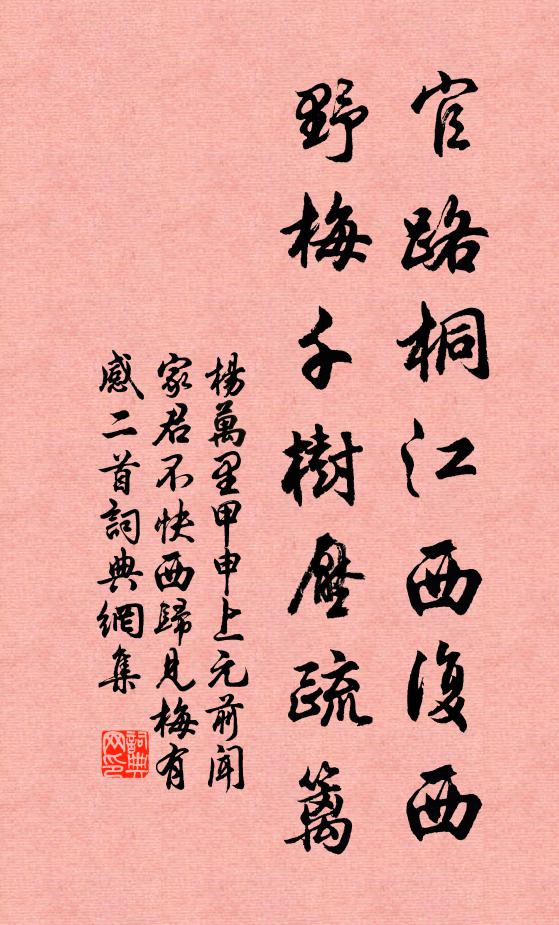 官路桐江西復西
野梅千樹壓疏籬
楊萬里甲申上元前聞
家君不快西歸見梅有
感二首詞典網集
詞典
网印